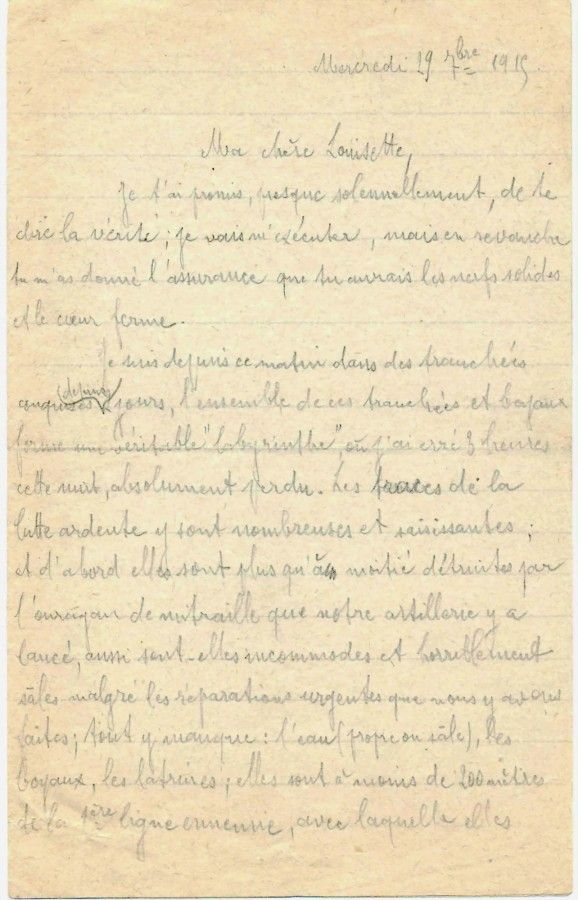 Mercredi 29 7bre 1915
Ma chère Louisette,
Je t'ai promis, presque solennellement, de te
dire la vérité ; je vais m'exécuter, mais en revanche
tu m'as donné l'assurance que tu aurais les nerfs solides
et le cœur ferme.
Je suis depuis ce matin dans des tranchées
conquises (depuis) jours, l'ensemble de ces tranchées et boyaux
forme un véritable "labyrinthe" où j'ai erré 3 heures
cette nuit, absolument perdu. Les traces de la
lutte ardente y sont nombreuses et saisissantes ;
et d'abord elles sont plus qu'à moitié détruites par
l'ouragan de mitraille que notre artillerie y a
lancé, aussi sont-elles incommodes et horriblement
sâles malgré les réparations urgentes que nous y avons
faites ; tout y manque : l'eau (propre ou sâle), les
boyaux, les latrines ; elles sont à moins de 200 mètres
de la 1ère ligne ennemie, avec laquelle elles